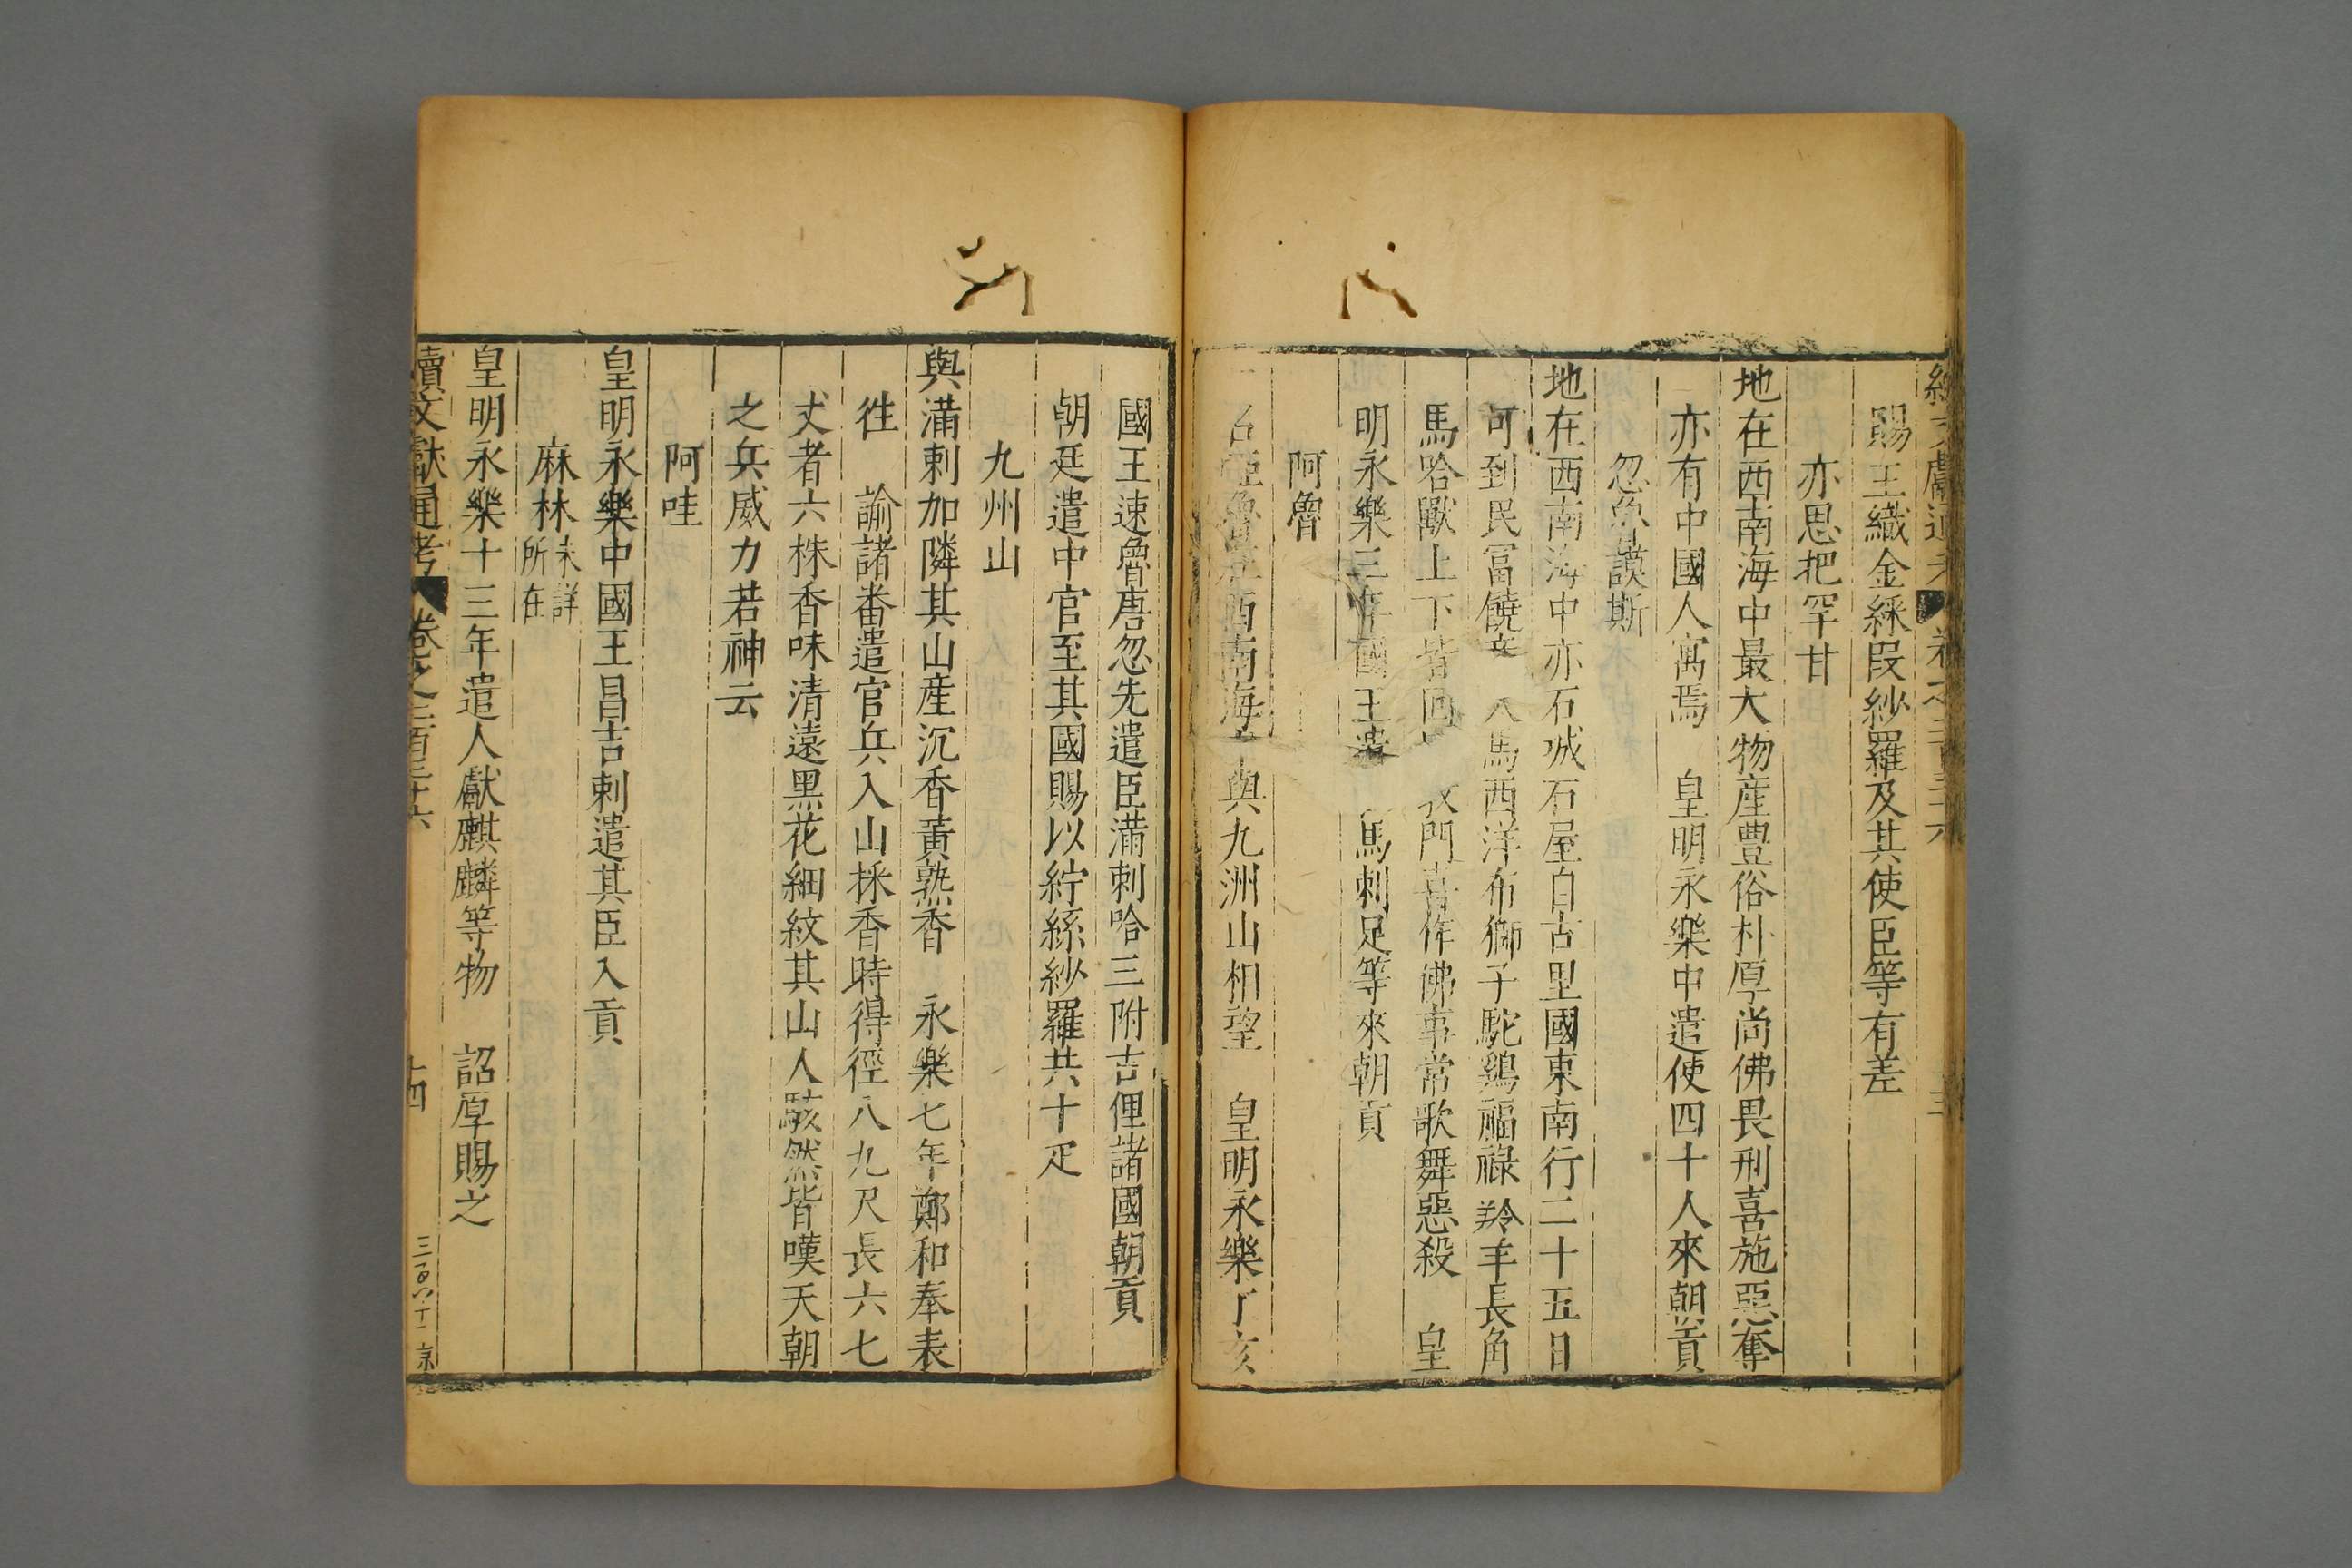 賜王織金綵段紗羅及其使臣等有差
亦思把罕甘
地在西南海中最大物産豊俗朴厚尚佛畏刑喜施惡奪
亦有中國人寓焉 皇明永樂中遣使四十人來朝貢
忽魯謨斯
地在西南海中亦石城石屋自古里國東南行二十五日
可到民冨饒産 大馬西洋布獅子駝鷄福祿羚羊長角
馬哈獸上下皆回 敎門喜作佛事常歌舞惡殺 皇
明永樂三年國王遣 馬剌足等來朝貢
阿魯
一名啞魯在西南海 與九洲山相望 皇明永樂丁亥
國王速魯唐忽先遣臣滿刺哈三附古俚諸國朝貢
朝廷遣中官至其國賜以紵絲紗羅共十疋
九州山
與滿剌加隣其山産沉香黃熟香 永樂七年鄭和奉表
徃 諭諸番遣官兵入山採香時得徑八九尺長六七
丈者六株香味清遠黑花細紋其山人駭然皆嘆天朝
之兵威力若神云
阿哇
皇明永樂中國王昌吉剌遣其臣入貢
麻林 未詳所在
皇明永樂十三年遣人獻麒麟等物 詔厚賜之
續文獻通考 卷之二百三十六 十四